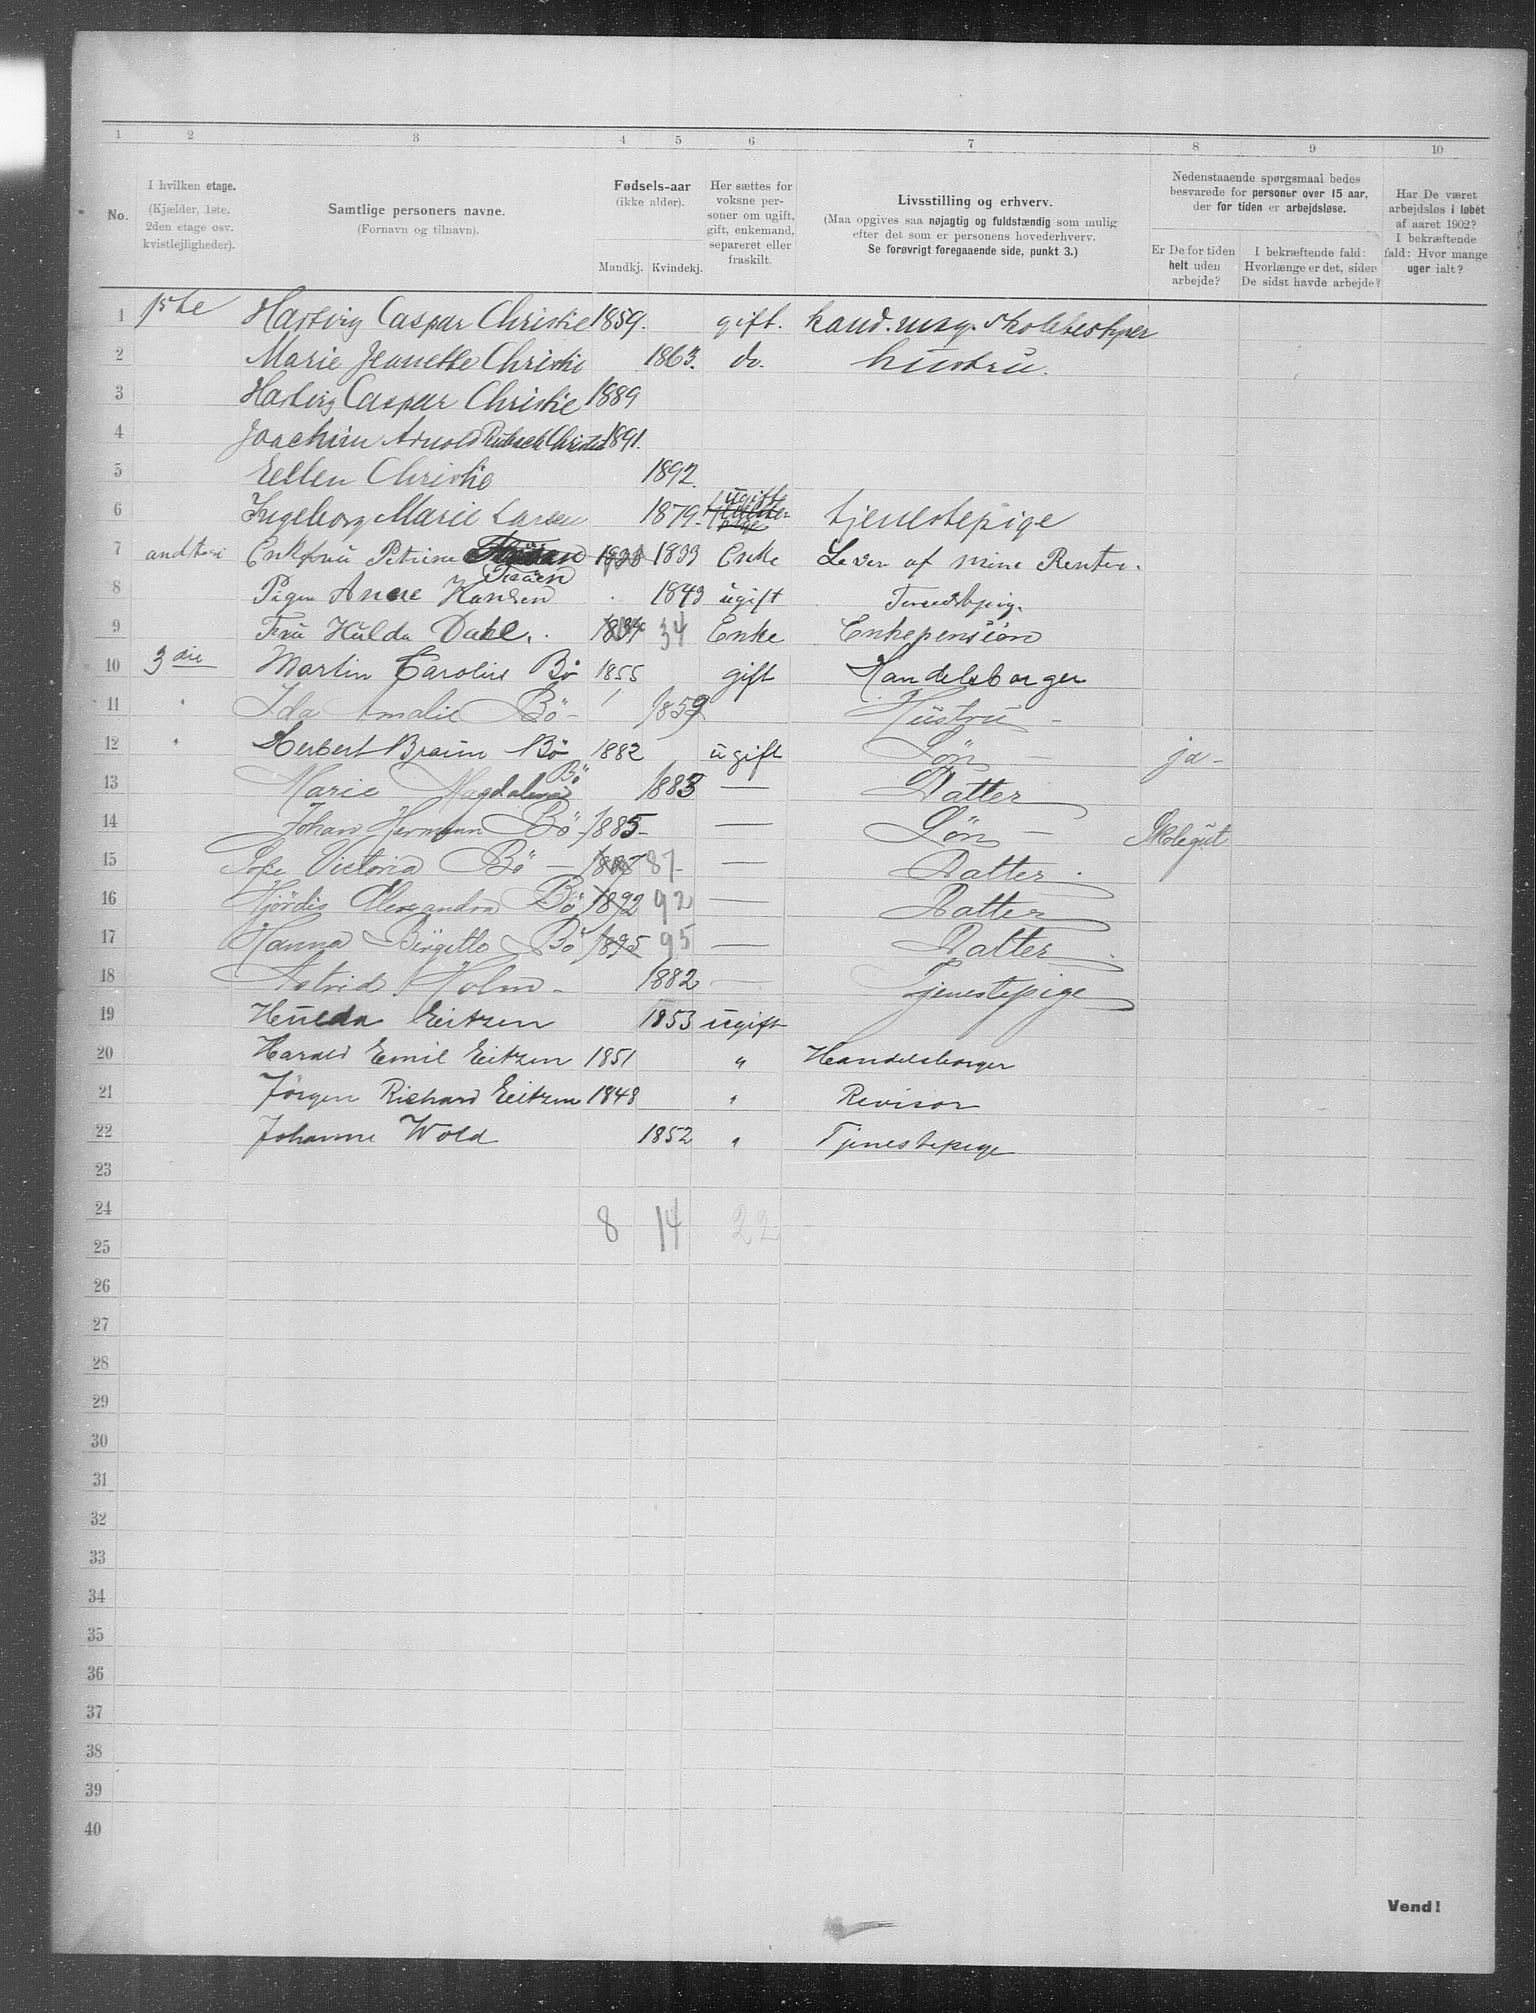 1 2 3 4 5 6 7 8 9 10
No.
I hvilken etage.
(Kjælder, 1ste,
2den etage osv.
kvistlejligheder).
Samtlige personers navne.
(Fornavn og tilnavn).
Fødsels-aar
(ikke alder).
Mandkj. Kvindekj.
Her sættes for
voksne per-
soner om ugift,
gift, enkemand,
separeret eller
fraskilt.
Livsstilling og erhverv.
(Maa opgives saa nøjagtig og fuldstændig som mulig
efter det som er personens hovederhverv.
Se forøvrigt foregaaende side, punkt 3.)
Nedenstaaende spørgsmaal bedes
besvarede for personer over 15 aar,
der for tiden er arbejdsløse.
Er De for tiden
helt uden
arbejde?
I bekræftende fald:
Hvorlænge er det, siden
De sidst havde arbejde?
Har De været
arbejdsløs i løbet
af aaret 1902?
I bekræftende
fald: Hvor mange
uger ialt?
1 1ste Hartvig Caspar Christie 1859. gift. kand. mag. skolebestyrer
2 Marie Jeanette Christie 1863. do. hustru.
3 Hartvig Caspar Christie 1889
4 Joachim Arnold Christie 1891.
5 Ellen Christie 1892.
6 Ingeborg Marie Larsen 1879. ugift tjenestepige
7 Enkefru Petrine 1833 Enke Lever af mine Renter.
8 Pigen Anne Hansen 1843 ugift
9 Fru Hulda Dahl. 1834 34 Enke Enkepension
10 3die Martin Carolius Bö 1855 gift Handelsborger
11 Ida Amalie Bö - 1859 Hüstrü -
12 Herbert Braün Bö 1882 ügift Sön - ja -
13 Marie Magdalena Bö 1883 — Datter
14 Johan Herman Bö - 1885 - — Sön - Skolegüt
15 Victoria Bö - 1887 87 - — Datter
16 Hjördis Alexandra Bö 1892 92 — Datter
17 Hanna Birgitte Bö 1895 95 — Datter
18 Astrid Holm - 1882 — Tjenestepige
19 Hulda Eitzen 1853 ugift
20 Harald Emil Eitzen 1851 " Handelsborger
21 Jörgen Richard Eitzen 1848 " Revisor
22 Johanne Wold 1852 " Tjenestepige
23
24 8 14 22
25
26
27
28
29
30
31
32
33
34
35
36
37
38
39
40
Vend!